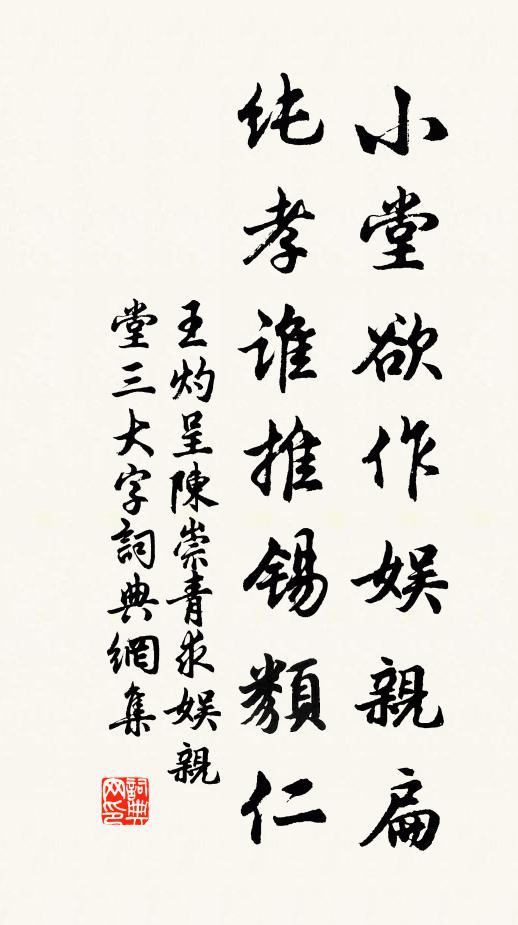 小堂欲作娱親扁
纯孝谁推锡類仁
王灼呈陳崇青求娱親
堂三大字詞典網集
詞典网印